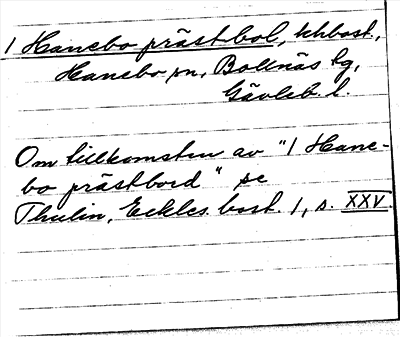 1 Hanebo prästbol, khbost.,
Hanebo sn, Bollnäs tg,
Gävleb. l.
Om tillkomsten av "1 Hane-
bo prästbord" se
Thulin, Eckles. bost. 1, s. XXV